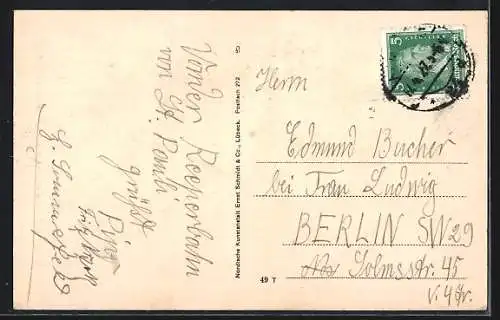 Von der Reeperbahn
von St. Pauli
grüßt
Nordische Kunstanstalt Ernst Schmidt & Co., Lübeck. Postfach 272
49 7
5
5
Herrn
Edmund Bucher
bei Frau Ludwig
BERLIN SW 29
Solmsstr. 45
v. 4 Tr.